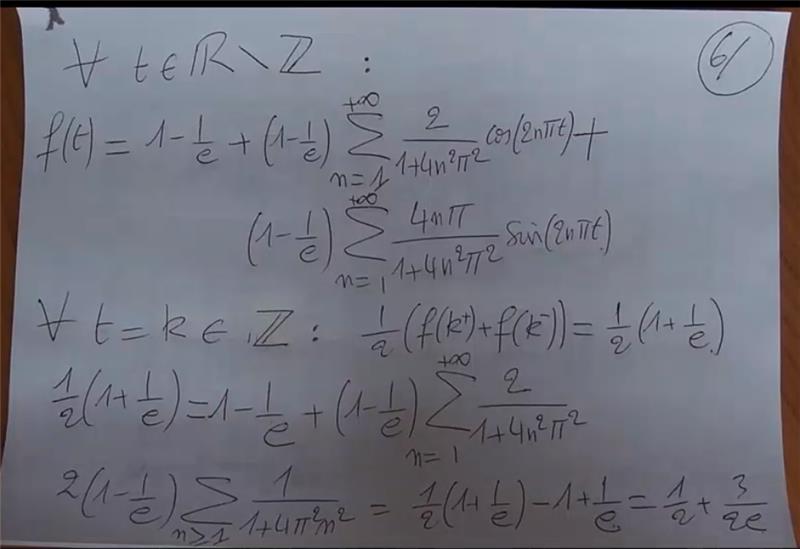 6/
∀ t ∈ ℝ \ ℤ :
f(t) = 1 - 1/e + (1 - 1/e) ∑_{n=1}^{+∞} 2/(1+4n²π²) cos(2nπt) +
(1 - 1/e) ∑_{n=1}^{+∞} 4nπ/(1+4n²π²) sin(2nπt)
∀ t = k ∈ ℤ : 1/2 (f(k⁺) + f(k⁻)) = 1/2 (1 + 1/e)
1/2 (1 + 1/e) = 1 - 1/e + (1 - 1/e) ∑_{n=1}^{+∞} 2/(1+4n²π²)
2(1 - 1/e) ∑_{n≥1} 1/(1+4π²n²) = 1/2 (1 + 1/e) - 1 + 1/e = 1/2 + 3/2e